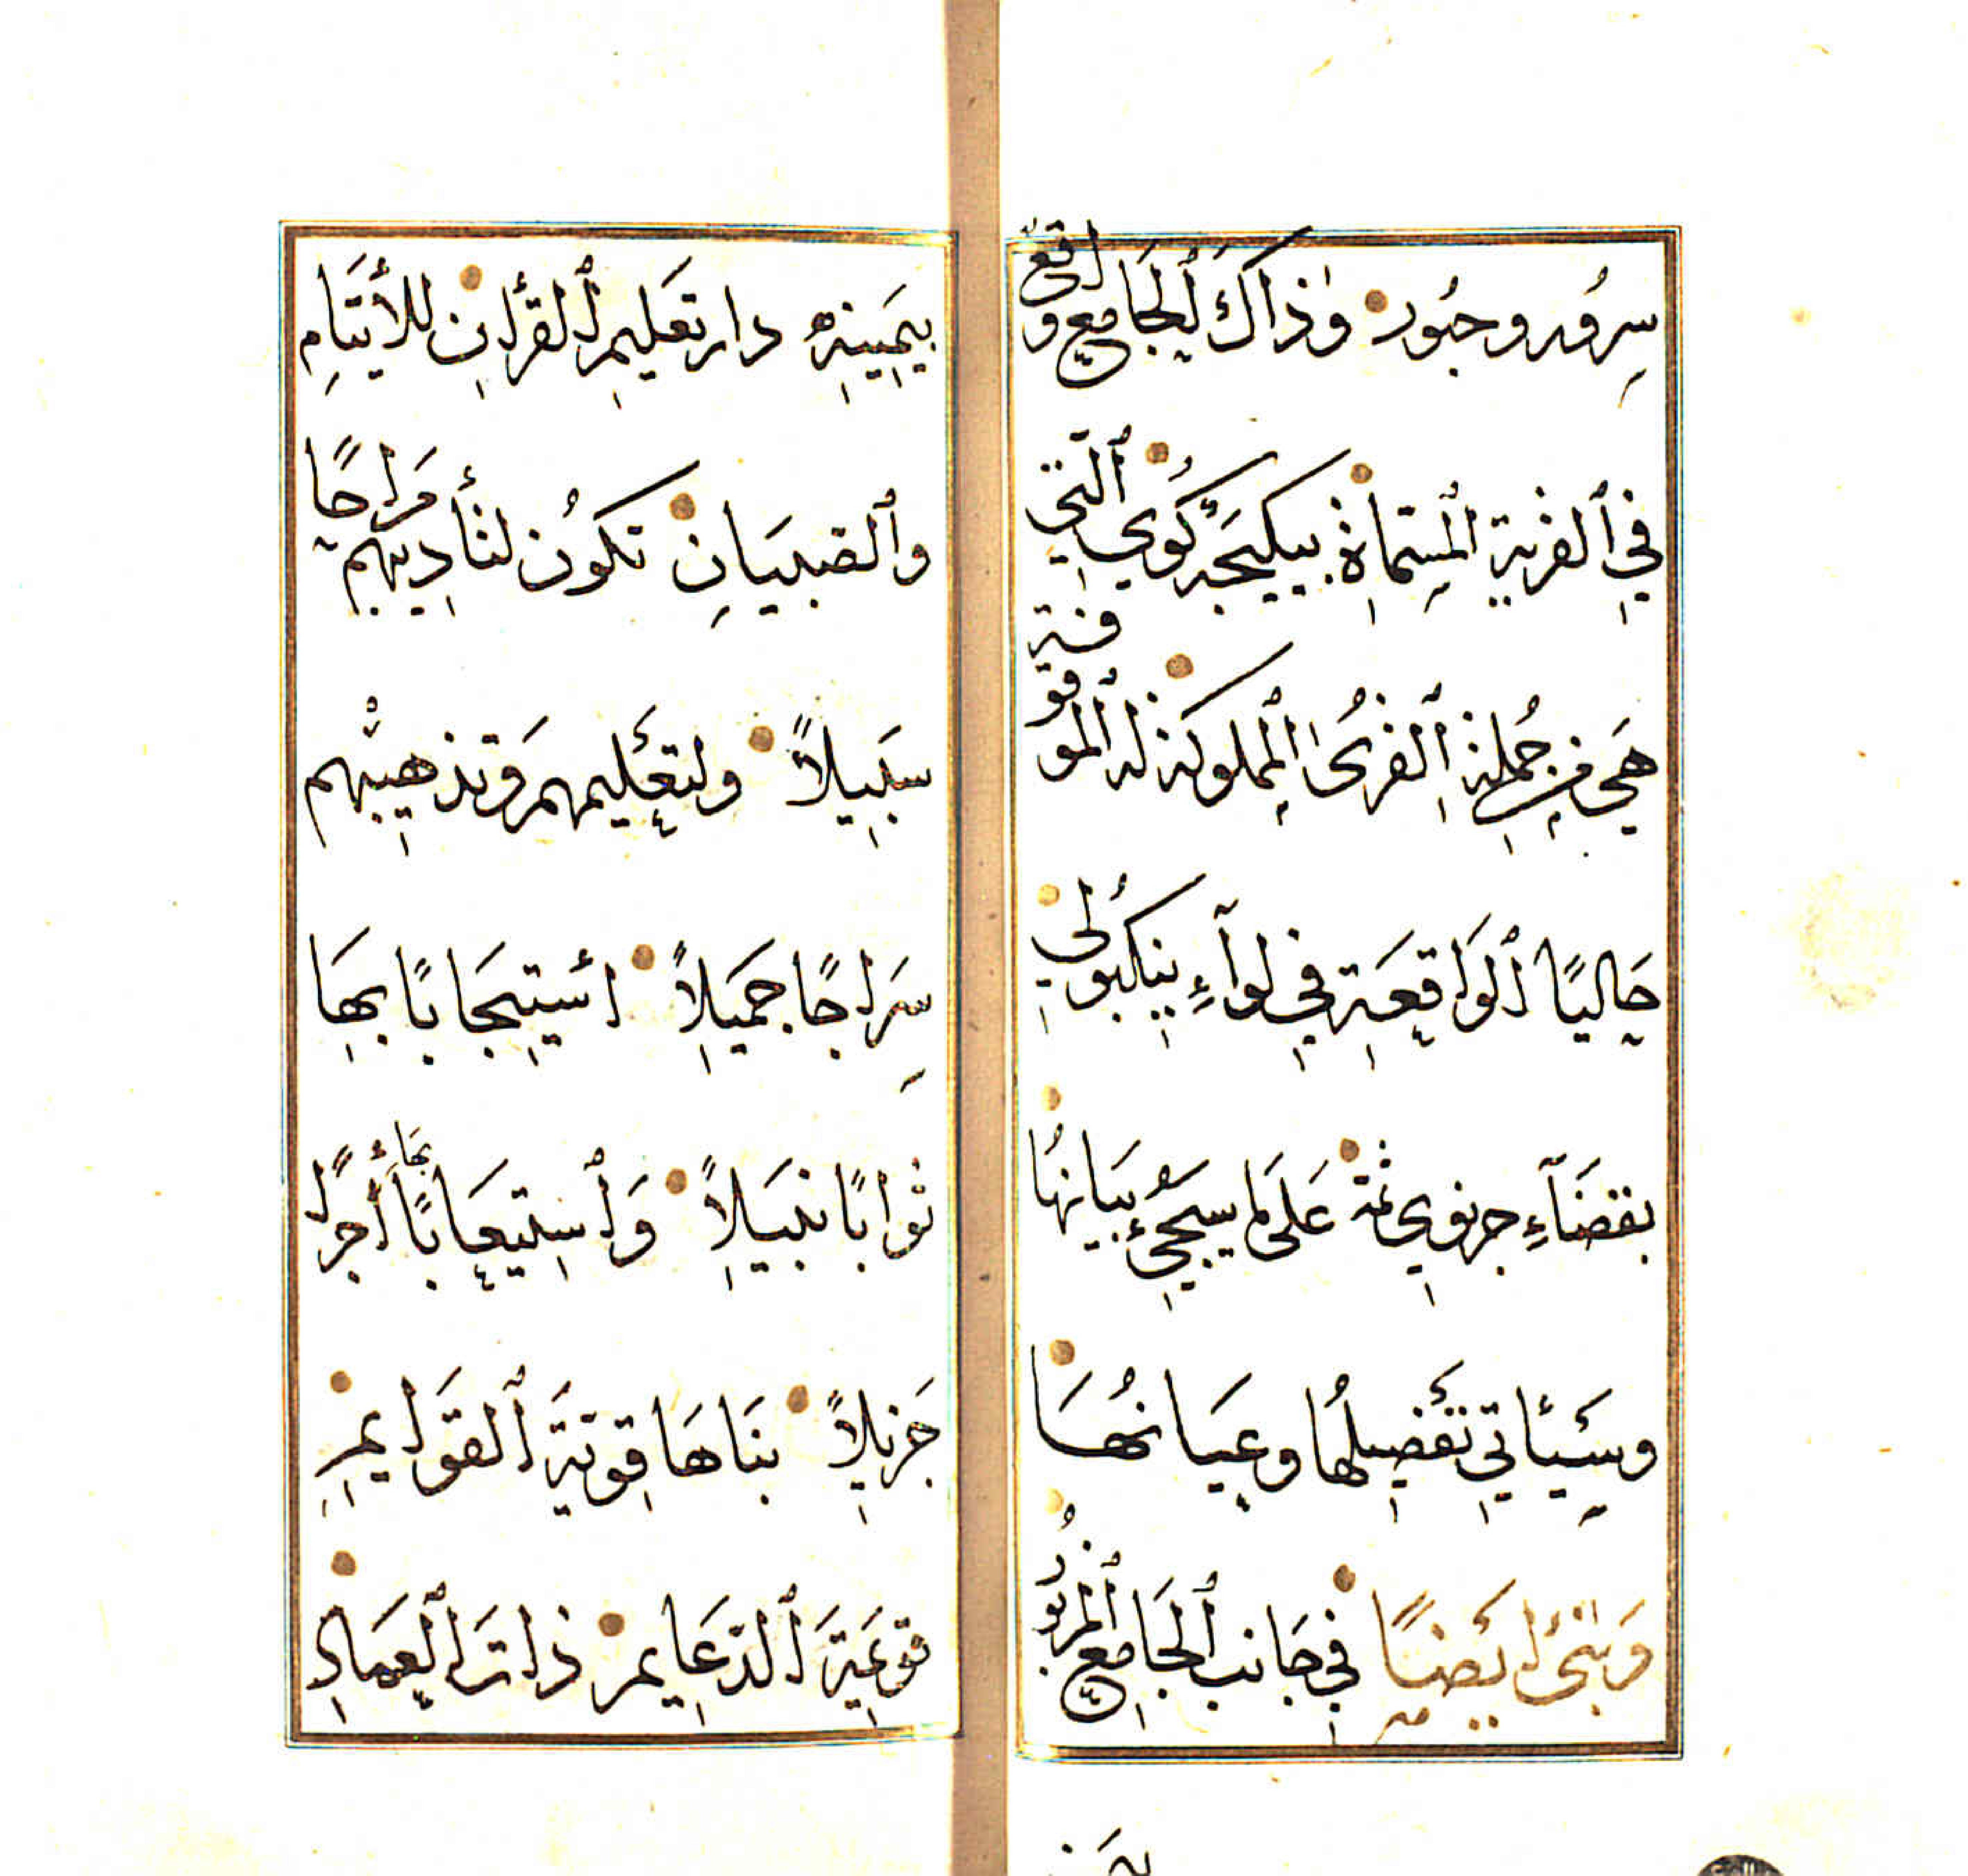 سُرُور وحُبُور وذاكَ الجَامع واقع
في القرية المسماة بيكيجه كُوي التي
هي من جُملة القُرى المملوكة له الموقوفة
حَاليًا الواقعَة في لوآءِ ينكبولي
بقضَآءِ جرنوي ثمّة عَلى ما سيَجيُ بيَانُهَا
وسيَأتي تفصيلُها وعيَانُهَا
وَبنى ايضًا في جَانب الجَامع المزبُور
بيَمينه دار تعَليم القرآن للأيتَامِ
والصبيَانِ تكوُن لنأديهم مَراحًا
سبَيلاً ولتعليمهم وتذهيبهم
سِرَاجًا جميَلاً استيجَابًا بهَا
ثوابًا نبيَلاً وَاستيعَابًا بها أجرًا
جَزيلاً بنَاهَا قويّةَ القوَايم
قويمَةَ الدّعَايم ذاتَ العمَادِ
بيمينه